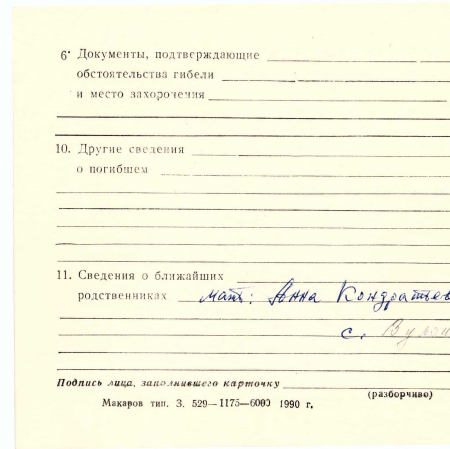 6· Документы, подтверждающие
обстоятельства гибели
и место захоронения
10. Другие сведения
о погибшем
11. Сведения о ближайших
родственниках мать: Анна Кондратьев
с.
Подпись лица, заполнившего карточку
(разборчиво)
Макаров тип. З. 529—1175—6000 1990 г.